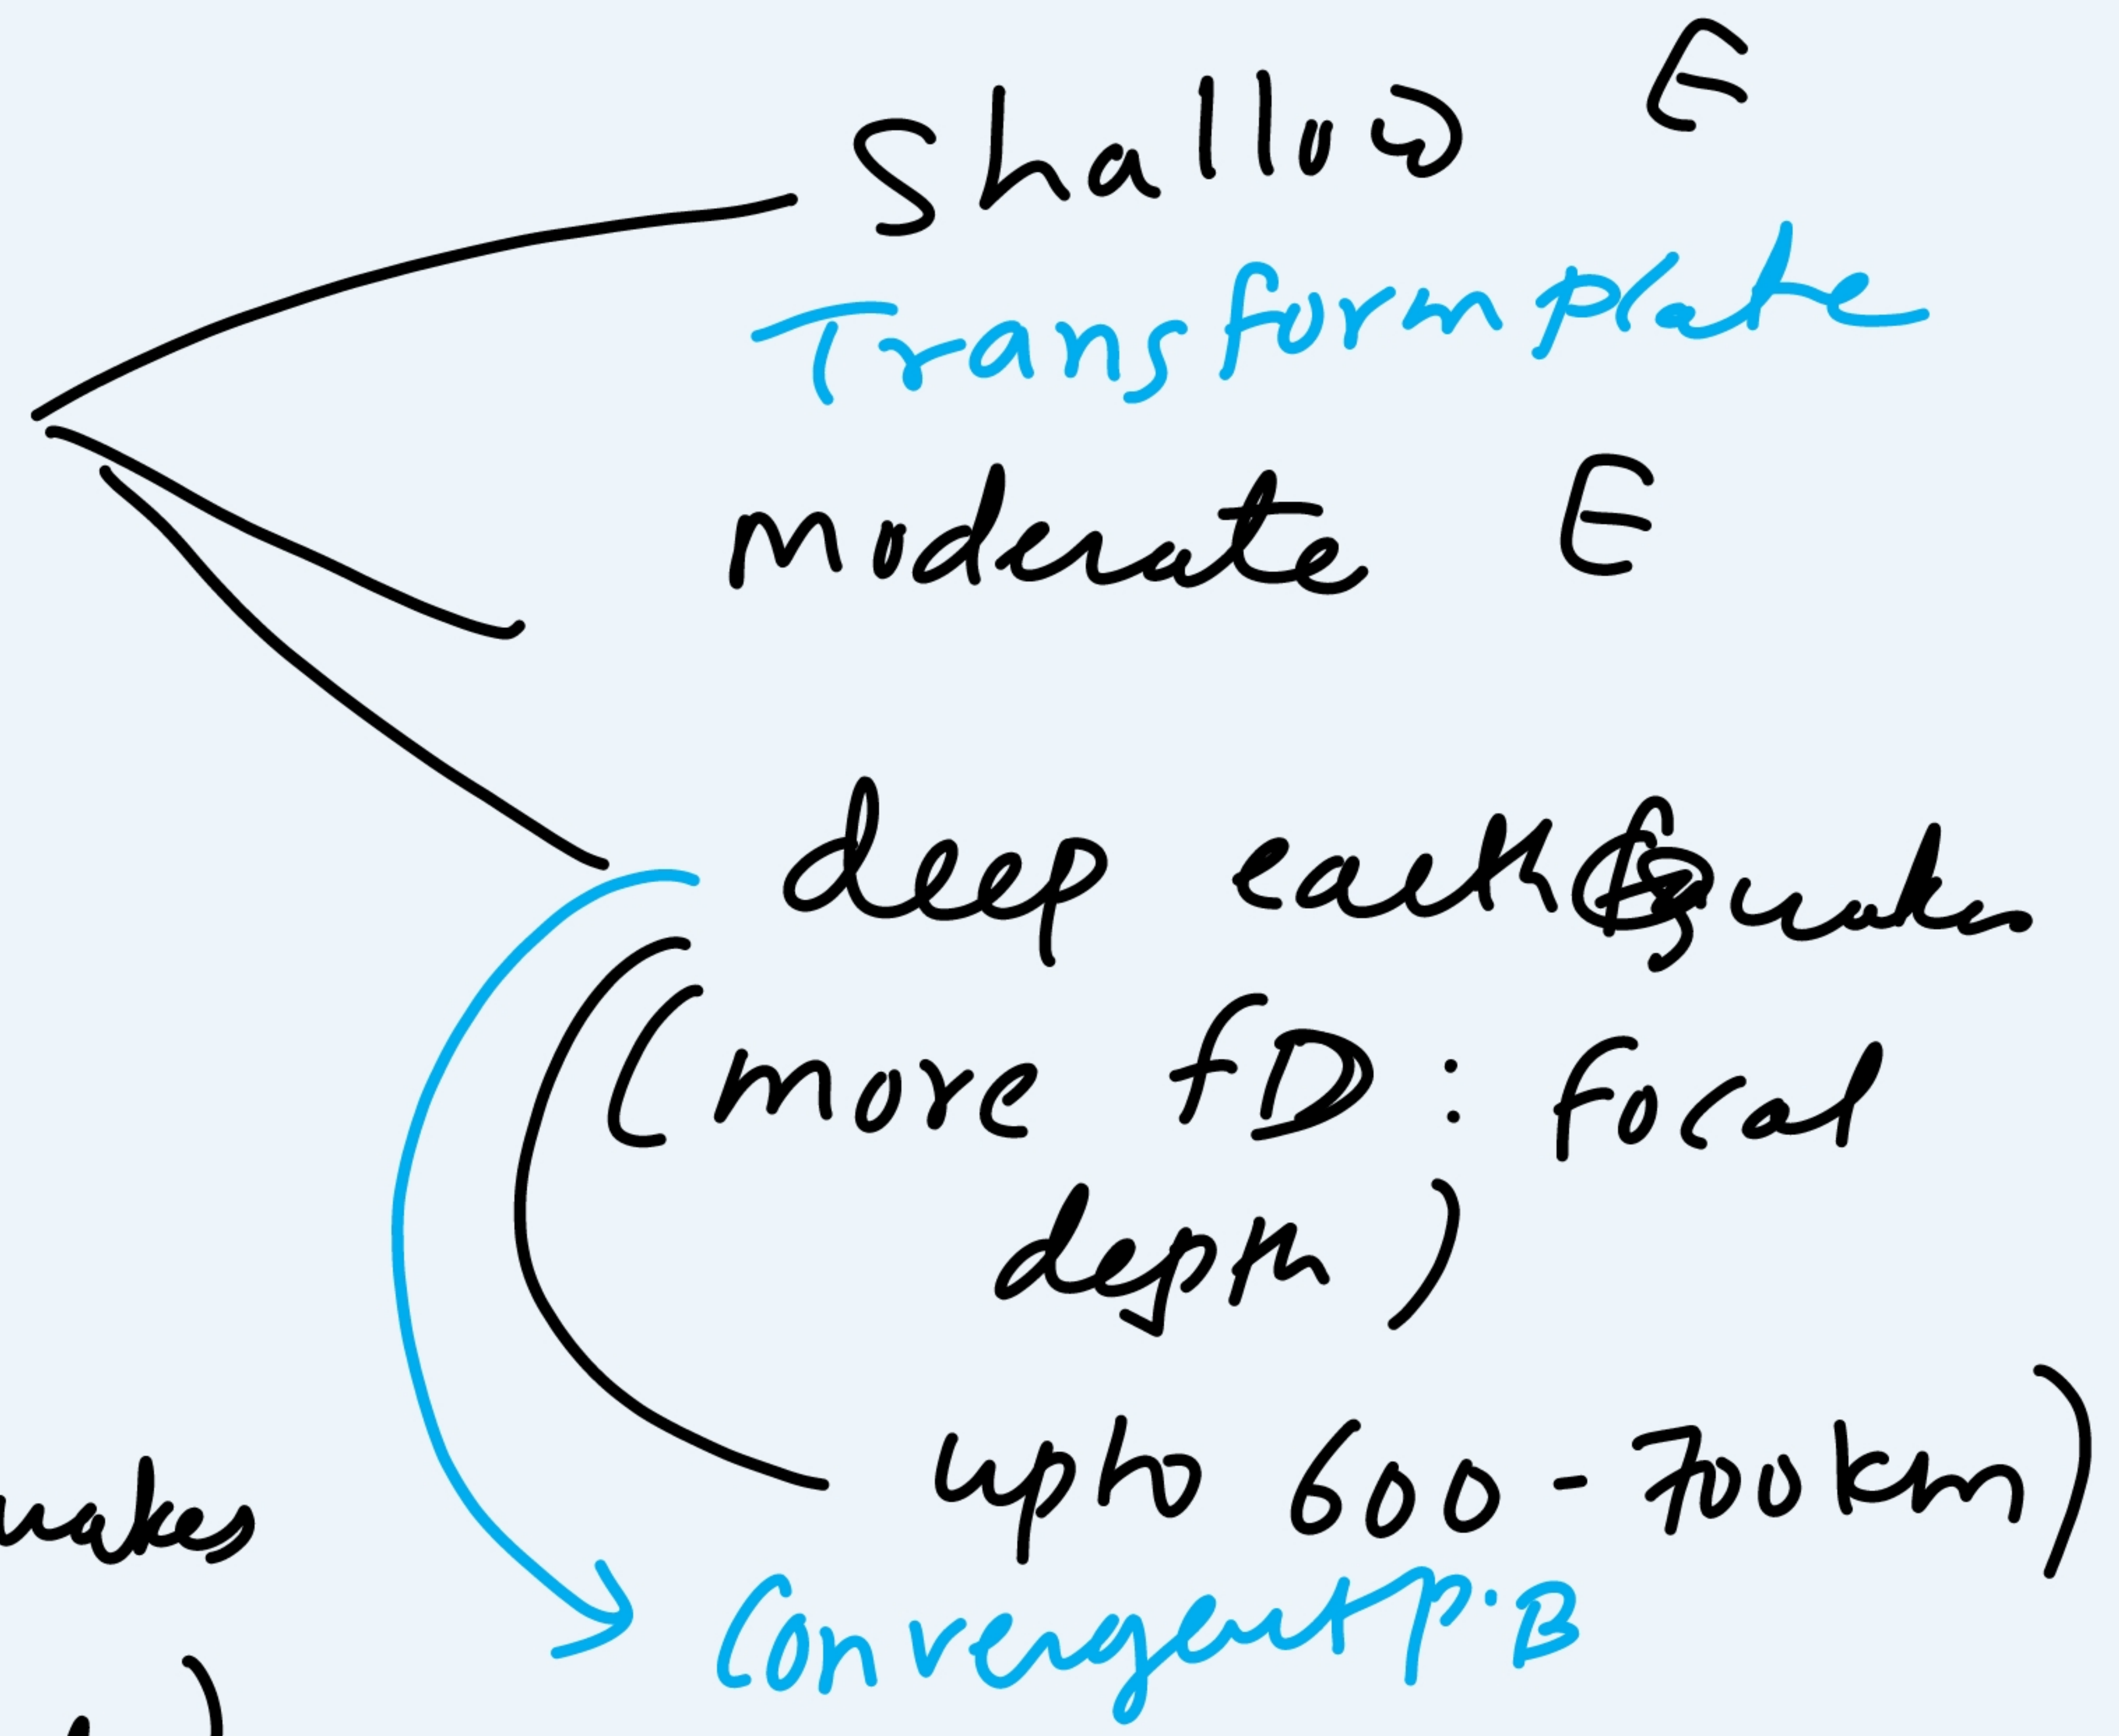 Shallow E
Transform plate
Moderate E
deep earthquakes
(more fD : focal
depth)
upto 600 - 700km)
uakes
Convergent P.B
)